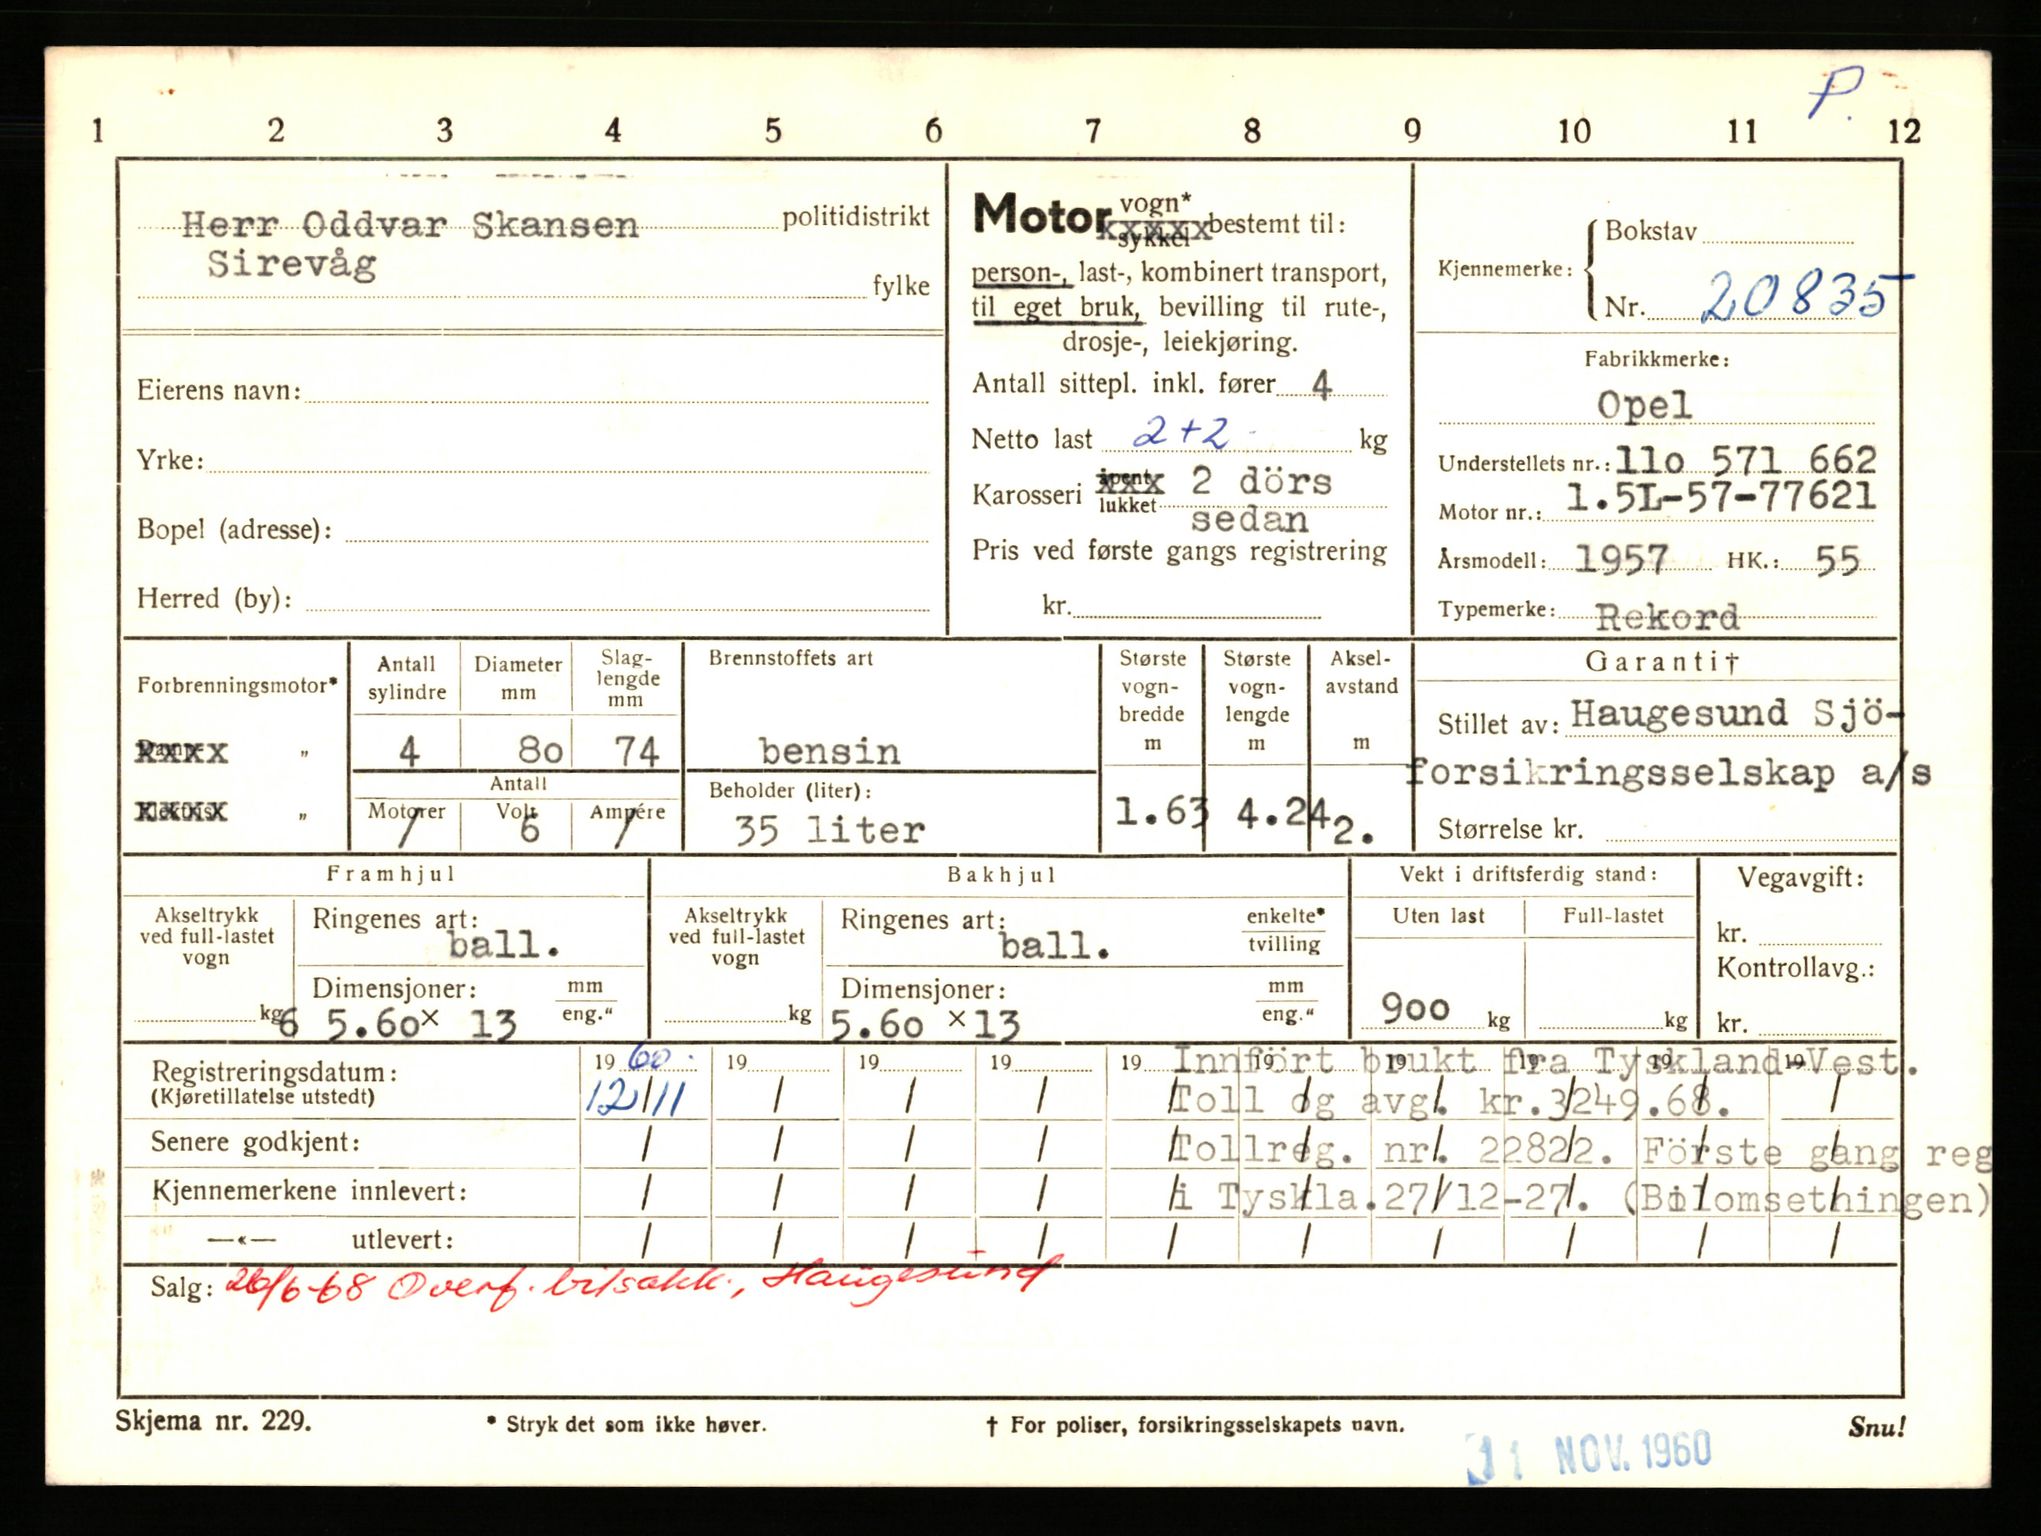 P.
1 2 3 4 5 6 7 8 9 10 11 12
Herr Oddvar Skansen politidistrikt
Sirevåg
fylke
Eierens navn:
Yrke:
Bopel (adresse):
Herred (by):
Motor vogn*
xxxxx bestemt til:
sykkel
person-, last-, kombinert transport,
til eget bruk, bevilling til rute-,
drosje-, leiekjøring.
Antall sittepl. inkl. fører 4
Netto last 2+2 kg
Karosseri åpent xxx lukket 2 dörs
sedan
Pris ved første gangs registrering
kr.
Kjennemerke: Bokstav
Nr. 20835
Fabrikkmerke:
Opel
Understellets nr.: 11o 571 662
Motor nr.: 1.5L-57-77621
Årsmodell: 1957 HK.: 55
Typemerke: Rekord
Forbrenningsmotor*
xxxx "
xxxx "
Antall sylindre
4
Diameter mm
8o
Slag-
lengde
mm
74
Antall
Motorer Volt Ampére
/ 6 /
Brennstoffets art
bensin
Beholder (liter):
35 liter
Største
vogn-
bredde
m
1.63
Største
vogn-
lengde
m
4.24
Aksel-
avstand
m
2.
Garanti†
Stillet av: Haugesund Sjö-
forsikringsselskap a/s
Størrelse kr.
Framhjul
Akseltrykk
ved full-lastet
vogn
kg
Ringenes art:
ball.
Dimensjoner: mm
eng."
6 5.6o x 13
Bakhjul
Akseltrykk
ved full-lastet
vogn
kg
Ringenes art: enkelte*
tvilling
ball.
Dimensjoner: mm
eng."
5.6o x 13
Vekt i driftsferdig stand:
Uten last Full-lastet
9oo kg kg
Vegavgift:
kr.
Kontrollavg.:
kr.
Registreringsdatum: 19 60. 19 19 19 19 19 19 19 19 19
(Kjøretillatelse utstedt) 12/11 / / / / / / / / /
Innfört brukt fra Tyskland-Vest.
Toll og avg. kr.3249.68.
Senere godkjent: / / / / / / / / / /
Tollreg. nr. 22822. Förste gang reg
Kjennemerkene innlevert: / / / / / / / / / /
i Tyskla.27/12-27. (Bilomsethingen)
—«— utlevert: / / / / / / / / / /
Salg: 26/6-68 Overf. bilsakk., Haugesund
Skjema nr. 229. * Stryk det som ikke høver. † For poliser, forsikringsselskapets navn. Snu!
11 NOV. 1960